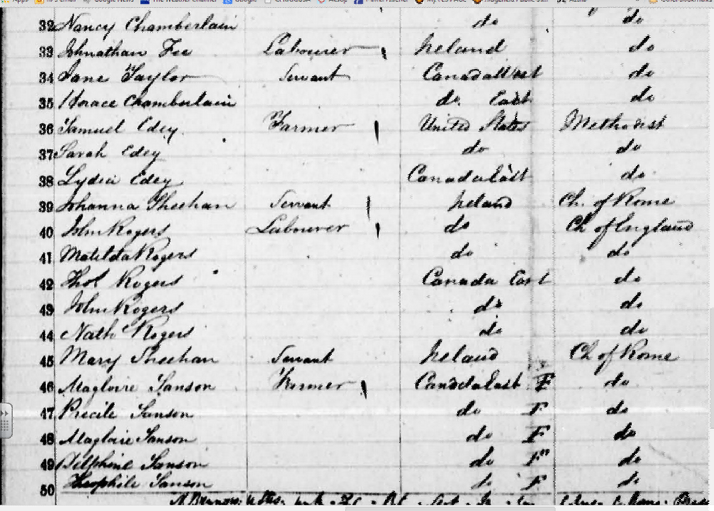 32 Nancy Chamberlain do do
33 Johnathan Fee Labourer 1 Ireland do
34 Jane Taylor Servant Canada West do
35 Horace Chamberlain do East do
36 Samuel Edey Farmer 1 United States Methodist
37 Sarah Edey do do
38 Lydia Edey Canada East do
39 Johanna Sheehan Servant 1 Ireland Ch. of Rome
40 John Rogers Labourer 1 do Ch of England
41 Matilda Rogers do do
42 Thos Rogers Canada East do
43 John Rogers do do
44 Nath Rogers do do
45 Mary Sheehan Servant Ireland Ch of Rome
46 Magloire Sanson Farmer 1 Canada East F do
47 Precile Sanson do F do
48 Magloire Sanson do F do
49 Delphine Sanson do F do
50 Theophile Sanson do F do